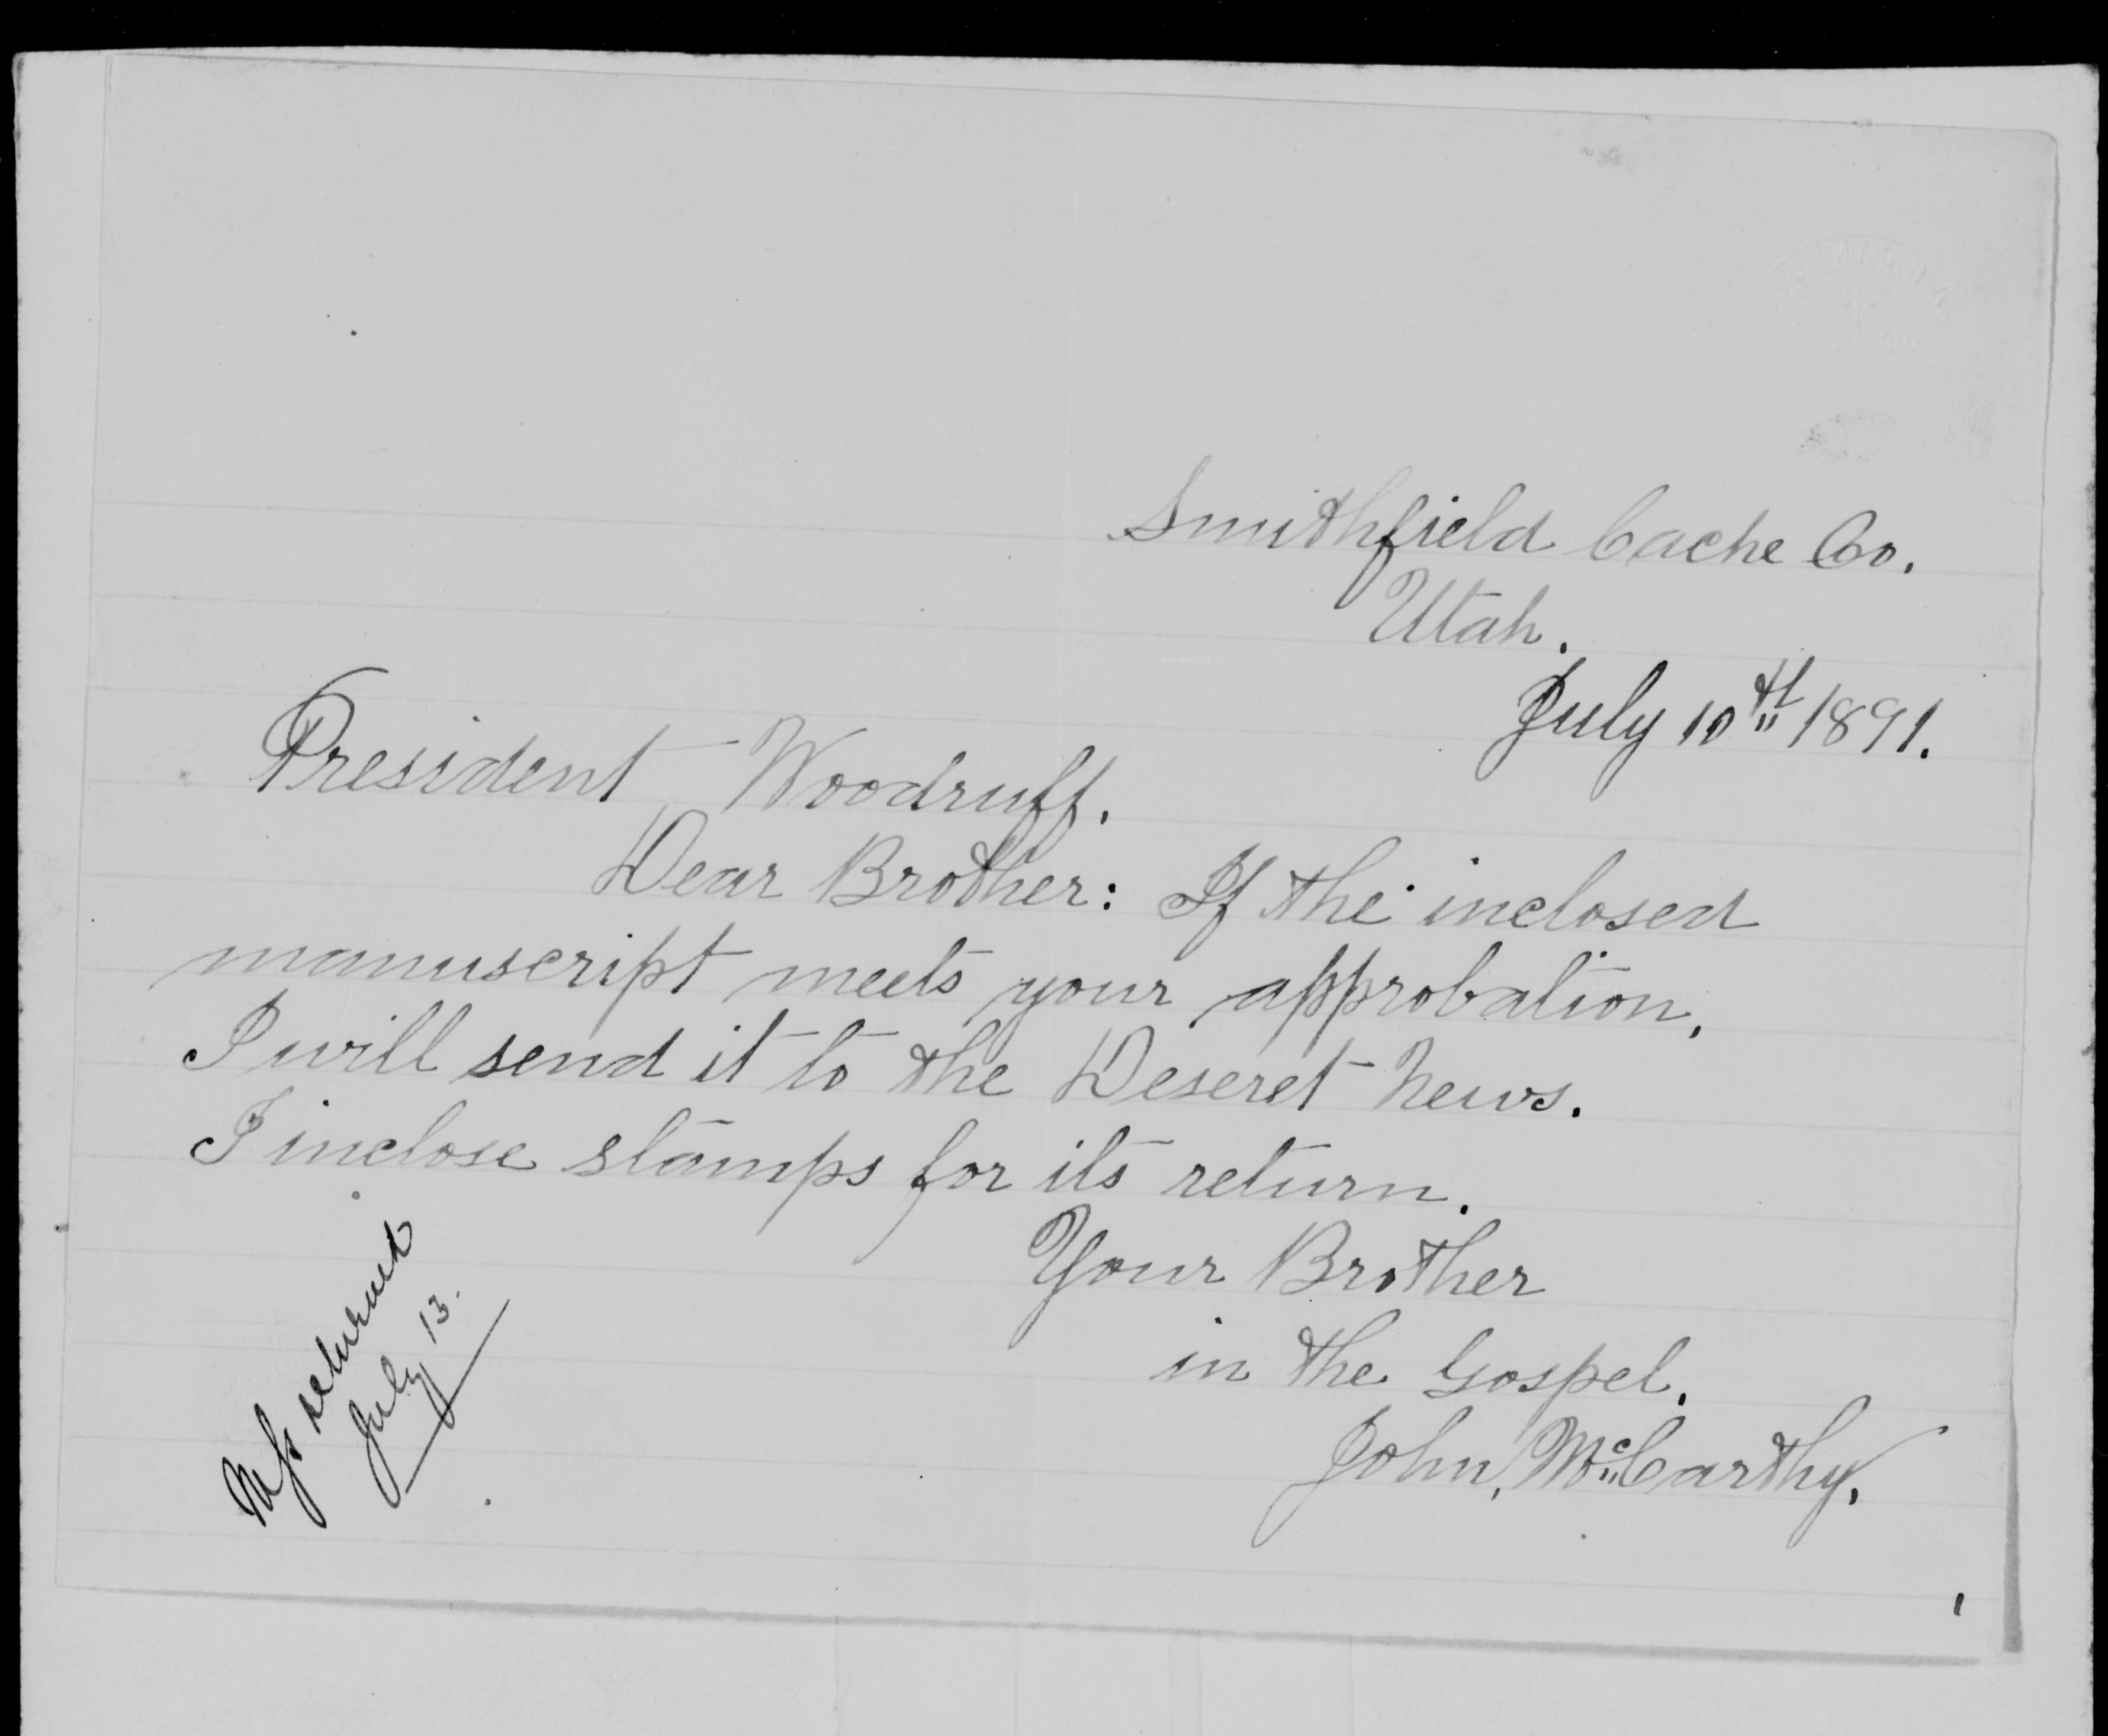 Smithfield Cache Co.
Utah.
July 10th 1891.
President Woodruff.
Dear Brother: If the inclosed
manuscript meets your approbation,
I will send it to the Deseret News.
I inclose stamps for its return.
Your Brother
in the Gospel.
John, McCarthy.
Mss returned
July 13.